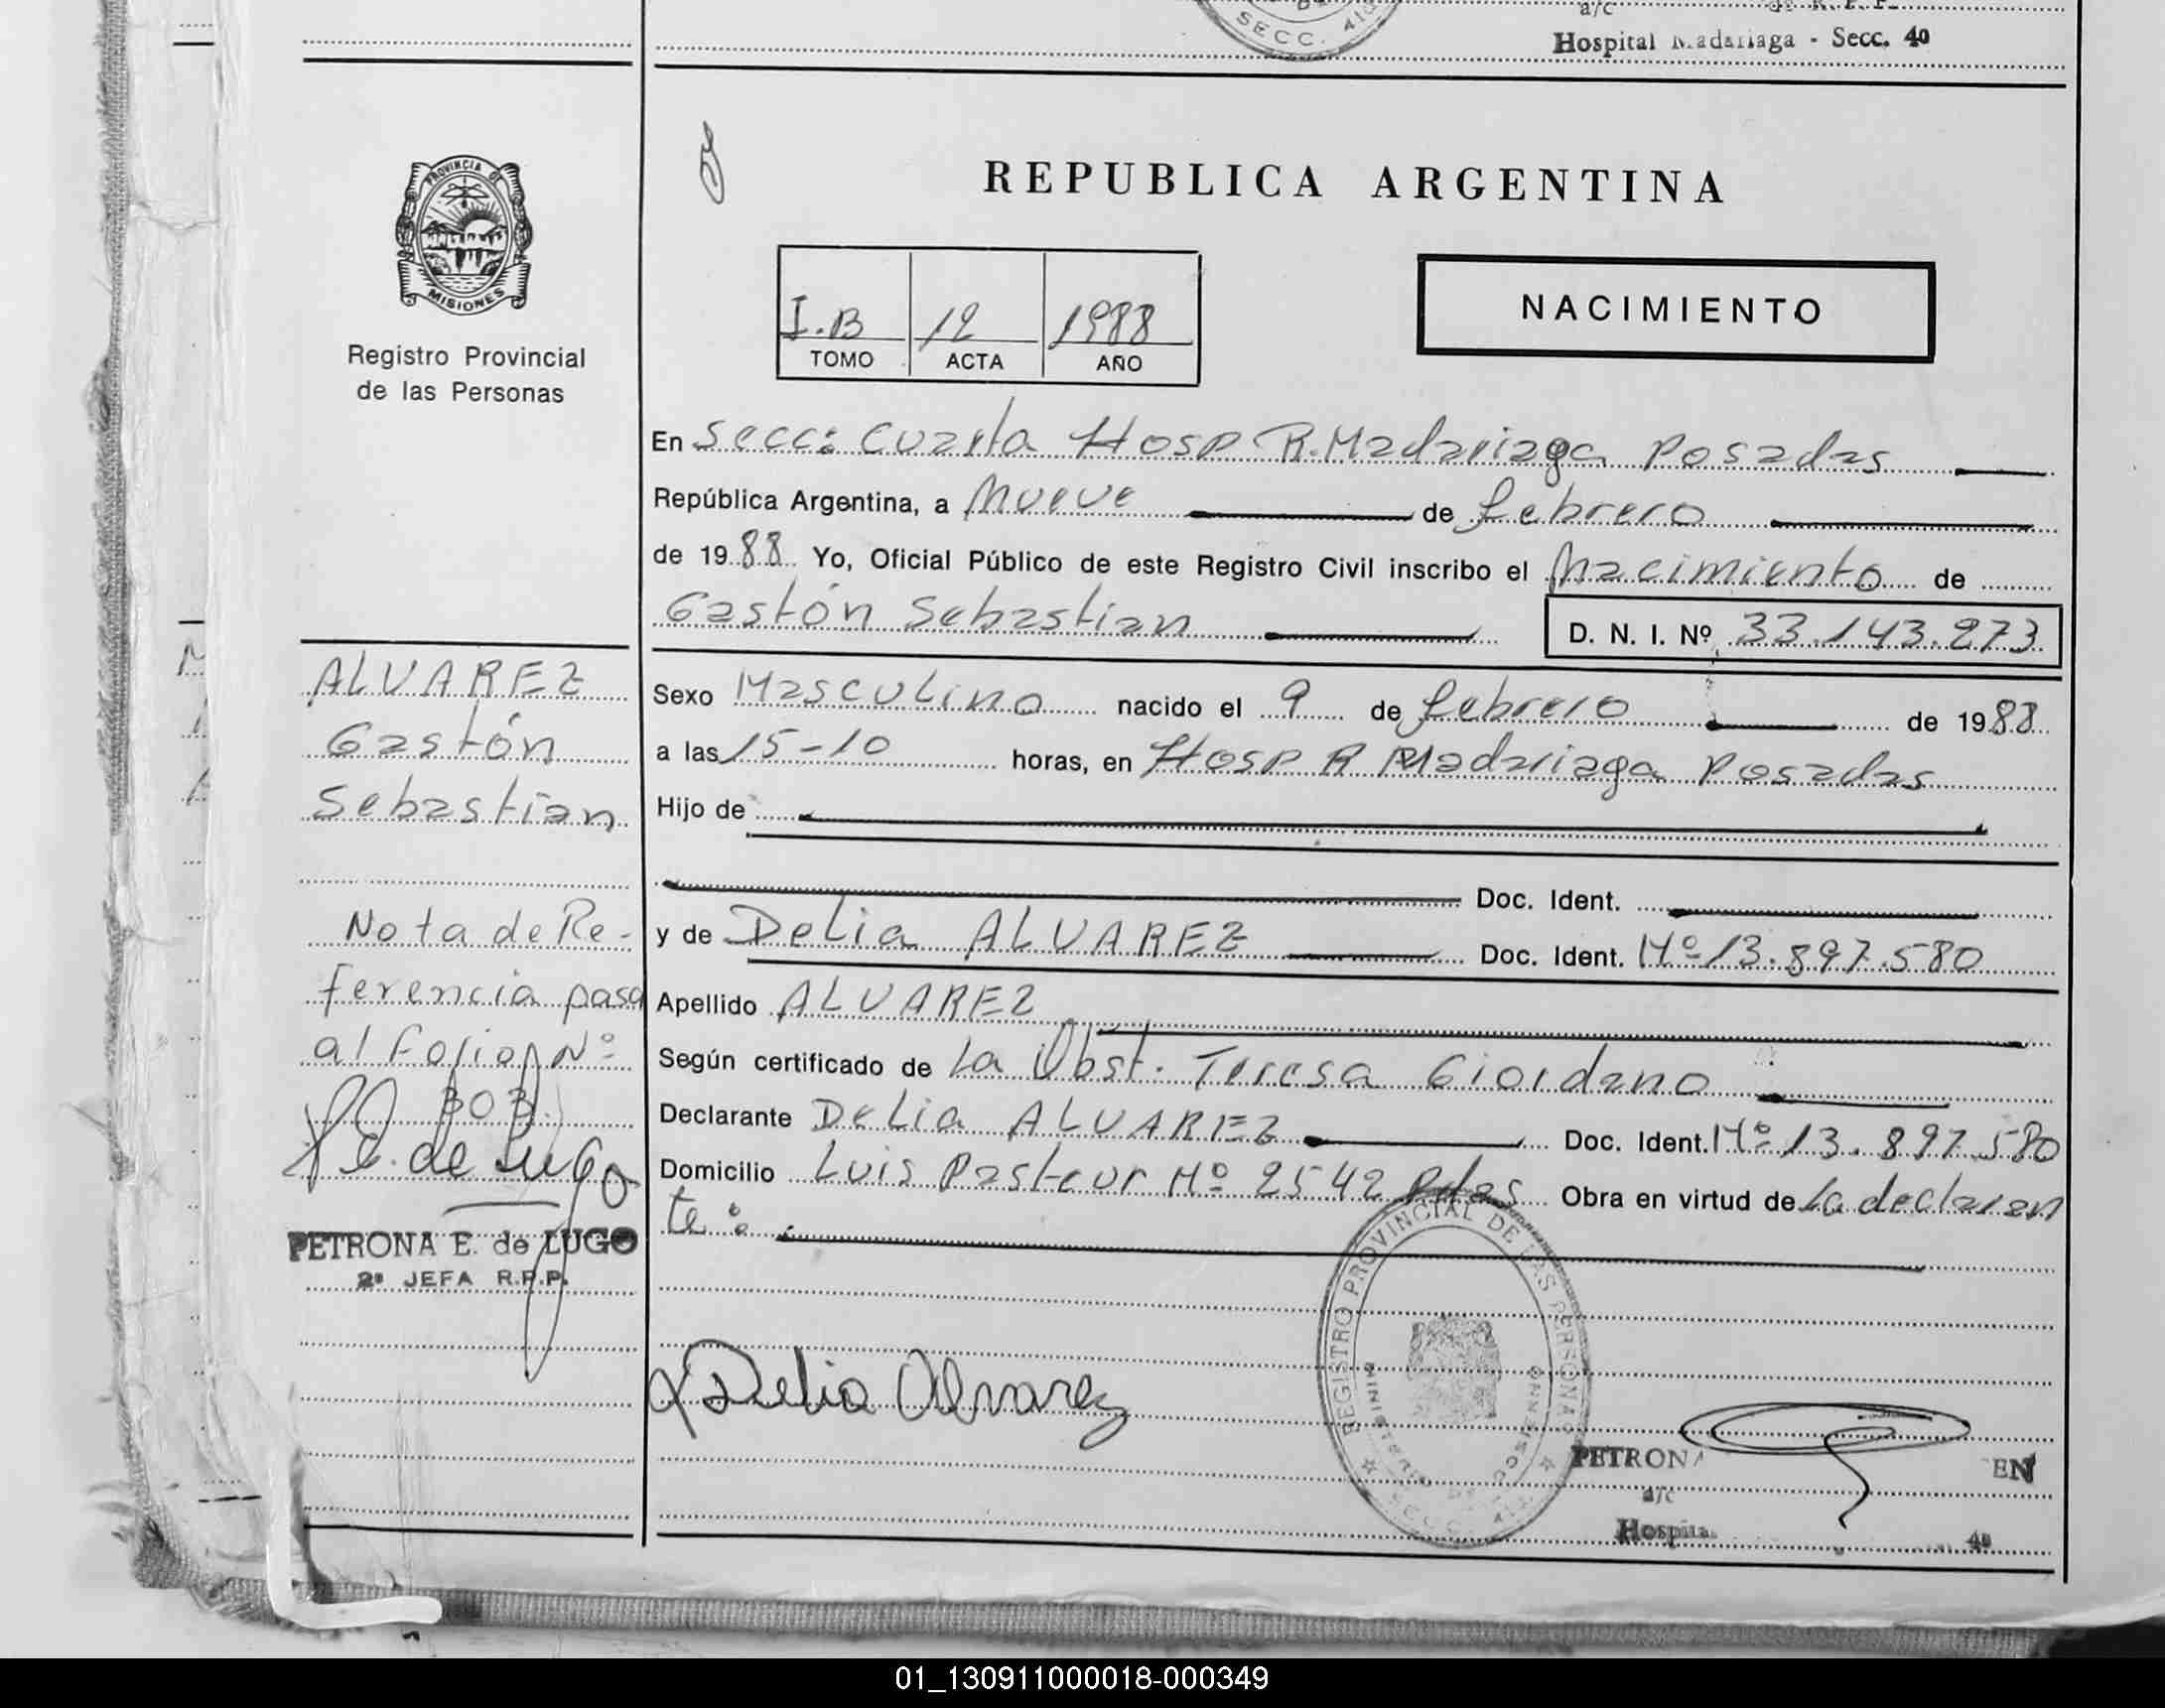 SECC. 4ta
a/c de R. P. P.
Hospital Madariaga - Secc. 40
PROVINCIA DE
MISIONES
Registro Provincial
de las Personas
REPUBLICA ARGENTINA
I.B 12 1988
TOMO ACTA AÑO
NACIMIENTO
En Secc: Cuarta Hosp R. Madariaga Posadas
República Argentina, a Nueve de febrero
de 1988 Yo, Oficial Público de este Registro Civil inscribo el Nacimiento de
Gastón Sebastian D. N. I. Nº 33.143.273
Sexo Masculino nacido el 9 de febrero de 1988
a las 15-10 horas, en Hosp R Madariaga Posadas
Hijo de
Doc. Ident.
y de Delia ALVAREZ Doc. Ident. Nº 13.897.580
Apellido ALVAREZ
Según certificado de La Obst. Teresa Giordano
Declarante Delia ALVAREZ Doc. Ident. Nº 13.897.580
Domicilio Luis Pasteur Nº 2542 Pdas Obra en virtud de La declaran
te:
ALVAREZ
Gastón
Sebastian
Nota de Re-
ferencia pasa
al folio Nº
303
P E. de Lugo
PETRONA E. de LUGO
2ª JEFA R.P.P.
Delia Alvarez
REGISTRO PROVINCIAL DE LAS PERSONAS
MINISTERIO DE GOBIERNO
SECC. 4ta
PETRONA EN
a/c
Hospita 40
01_130911000018-000349